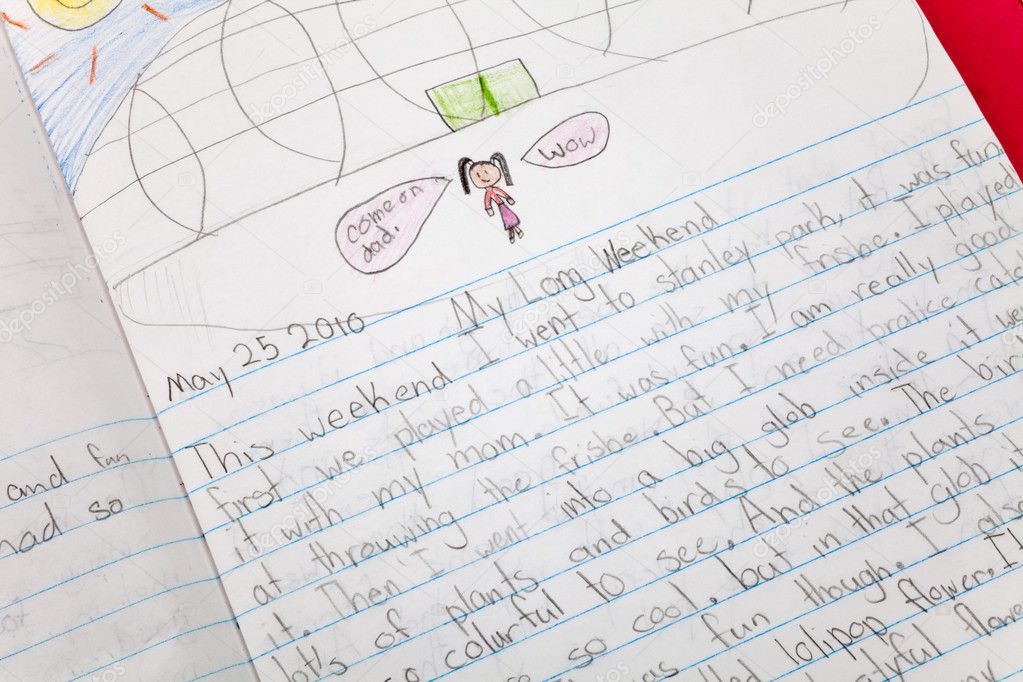 come on
dad.
wow
May 25 2010 My Long Weekend
This weekend I went to stanley park, it was fun
first we played a little with my frisbe. I played
it with my mom. It was fun. I am really good
at throuwing the frisbe. But I need pratice catc
it. Then I went into a big glob inside it we
lot's of plants and birds to see. The bir
so colurful to see. And the plants
so cool. but in that glob it
fun though. I also
lolipop flower. I
flowe
my
and fun
had so
depositphotos